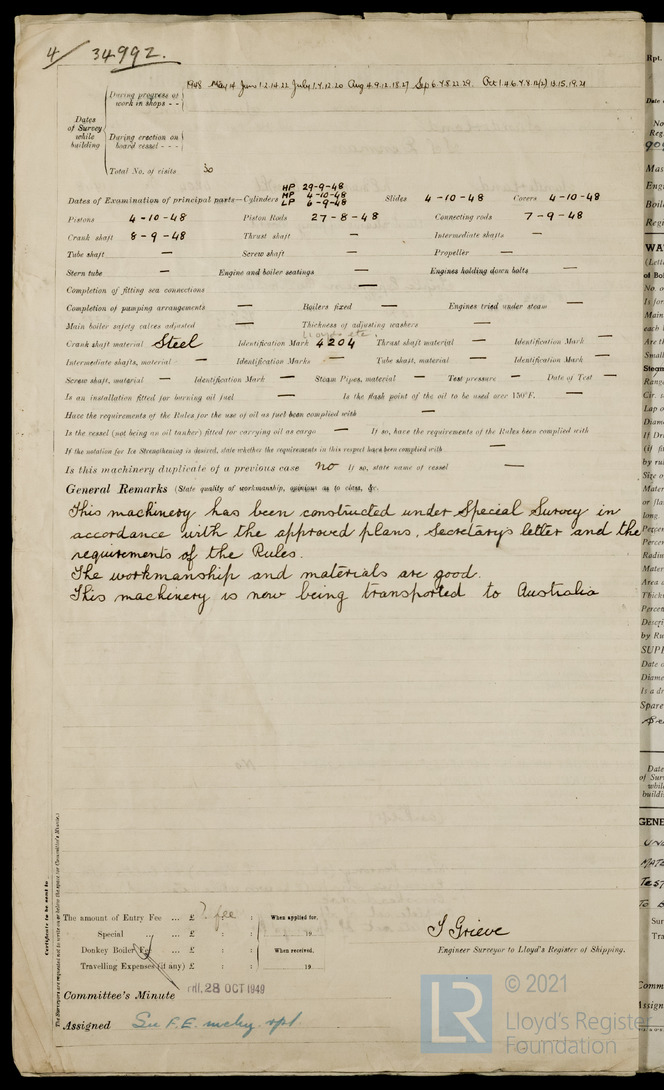 4/ 34992.
1948 May 14 June 1.2.14.22 July 1.7.12.20 Aug 4.9.12.18.27 Sep 6.7.8.22.29. Oct 1.4.6.7.8.12(2) 13.15.19.21
Dates of Survey while building
During progress of work in shops - -
During erection on board vessel - - -
Total No. of visits 30
Dates of Examination of principal parts—Cylinders HP 29-9-48 MP 4-10-48 LP 6-9-48 Slides 4-10-48 Covers 4-10-48
Pistons 4-10-48 Piston Rods 27-8-48 Connecting rods 7-9-48
Crank shaft 8-9-48 Thrust shaft — Intermediate shafts —
Tube shaft — Screw shaft — Propeller —
Stern tube — Engine and boiler seatings — Engines holding down bolts —
Completion of fitting sea connections —
Completion of pumping arrangements — Boilers fixed — Engines tried under steam —
Main boiler safety valves adjusted — Thickness of adjusting washers
Lloyds etc.
Crank shaft material Steel Identification Mark 4204 Thrust shaft material — Identification Mark —
Intermediate shafts, material — Identification Marks — Tube shaft, material — Identification Mark —
Screw shaft, material — Identification Mark — Steam Pipes, material — Test pressure — Date of Test —
Is an installation fitted for burning oil fuel — Is the flash point of the oil to be used over 150°F. —
Have the requirements of the Rules for the use of oil as fuel been complied with —
Is the vessel (not being an oil tanker) fitted for carrying oil as cargo — If so, have the requirements of the Rules been complied with
If the notation for Ice Strengthening is desired, state whether the requirements in this respect have been complied with —
Is this machinery duplicate of a previous case no If so, state name of vessel —
General Remarks (State quality of workmanship, opinions as to class, &c.
This machinery has been constructed under Special Survey in
accordance with the approved plans, Secretary's letter and the
requirements of the Rules.
The workmanship and materials are good.
This machinery is now being transported to Australia
Certificate to be sent to
The Surveyors are requested not to write on or below the space for Committee's Minute.
The amount of Entry Fee ... £ ? fee : When applied for,
Special ... £ : : 19
Donkey Boiler Fee ... £ : : When received,
Travelling Expenses (if any) £ : : 19
J Grieve
Engineer Surveyor to Lloyd's Register of Shipping.
Committee's Minute FRI. 28 OCT 1949
Assigned See F.E. mchy. rpt.
LR © 2021 Lloyd's Register Foundation